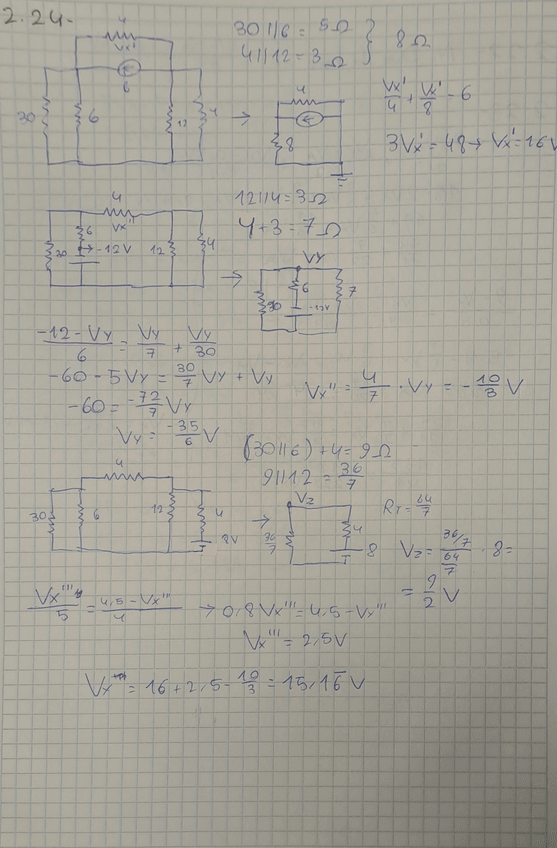 2.24.
4
Vx'
6
30
6
12
4
30116 = 5Ω
41112 = 3Ω
8Ω
4
8
Vx'/4 + Vx'/8 = 6
3Vx' = 48 → Vx' = 16V
4
Vx''
30
6
-12V
12
4
12114 = 3Ω
4+3 = 7Ω
VY
30
6
-12V
7
(-12 - VY)/6 = VY/7 + VY/30
-60 - 5VY = 30/7 VY + VY
-60 = -72/7 VY
VY = -35/6 V
Vx'' = 4/7 · VY = -10/3 V
(30116) + 4 = 9Ω
91112 = 36/7
4
30
6
12
4
8V
Vz
36/7
4
8
RT = 64/7
Vz = (36/7)/(64/7) · 8 =
= 9/2 V
Vx'''/5 = (4,5 - Vx''')/4 → 0,8Vx''' = 4,5 - Vx'''
Vx''' = 2,5V
Vx = 16 + 2,5 - 10/3 = 15,16 V